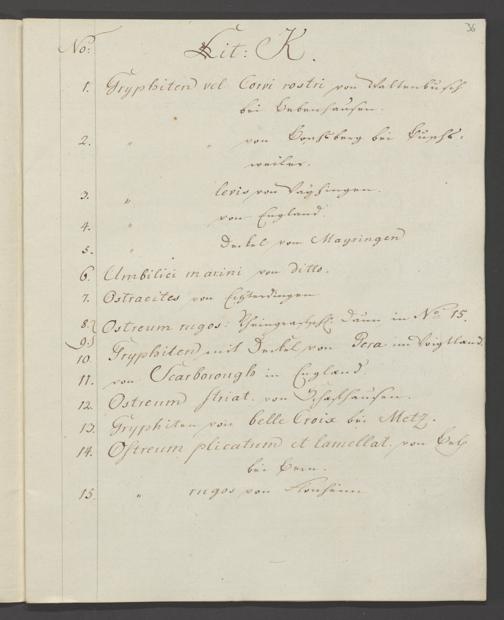 36
No: Lit: K.
1. Gryphiten vel Corvi rostri von Waltenbuch
bei Bebenhausen.
2. " " von bei Buchs-
weiler.
3. " levis von Vayhingen.
4. " von England.
5. " Deckel von Mayringen
6. Umbilici marini von ditto.
7. Ostracites von Echterdingen
8. Ostreum rugos: Rheingrafsch. Daun in No 15.
9.
10. Gryphiten mit Deckel von Pera im Voigtland.
11. von Scarborough in England.
12. Ostreum striat. von Schafhausen.
13. Gryphiten von belle Croix bei Metz.
14. Ostreum plicatum et lamellat. von Belp
bei Bern.
15. " rugos von Flonheim